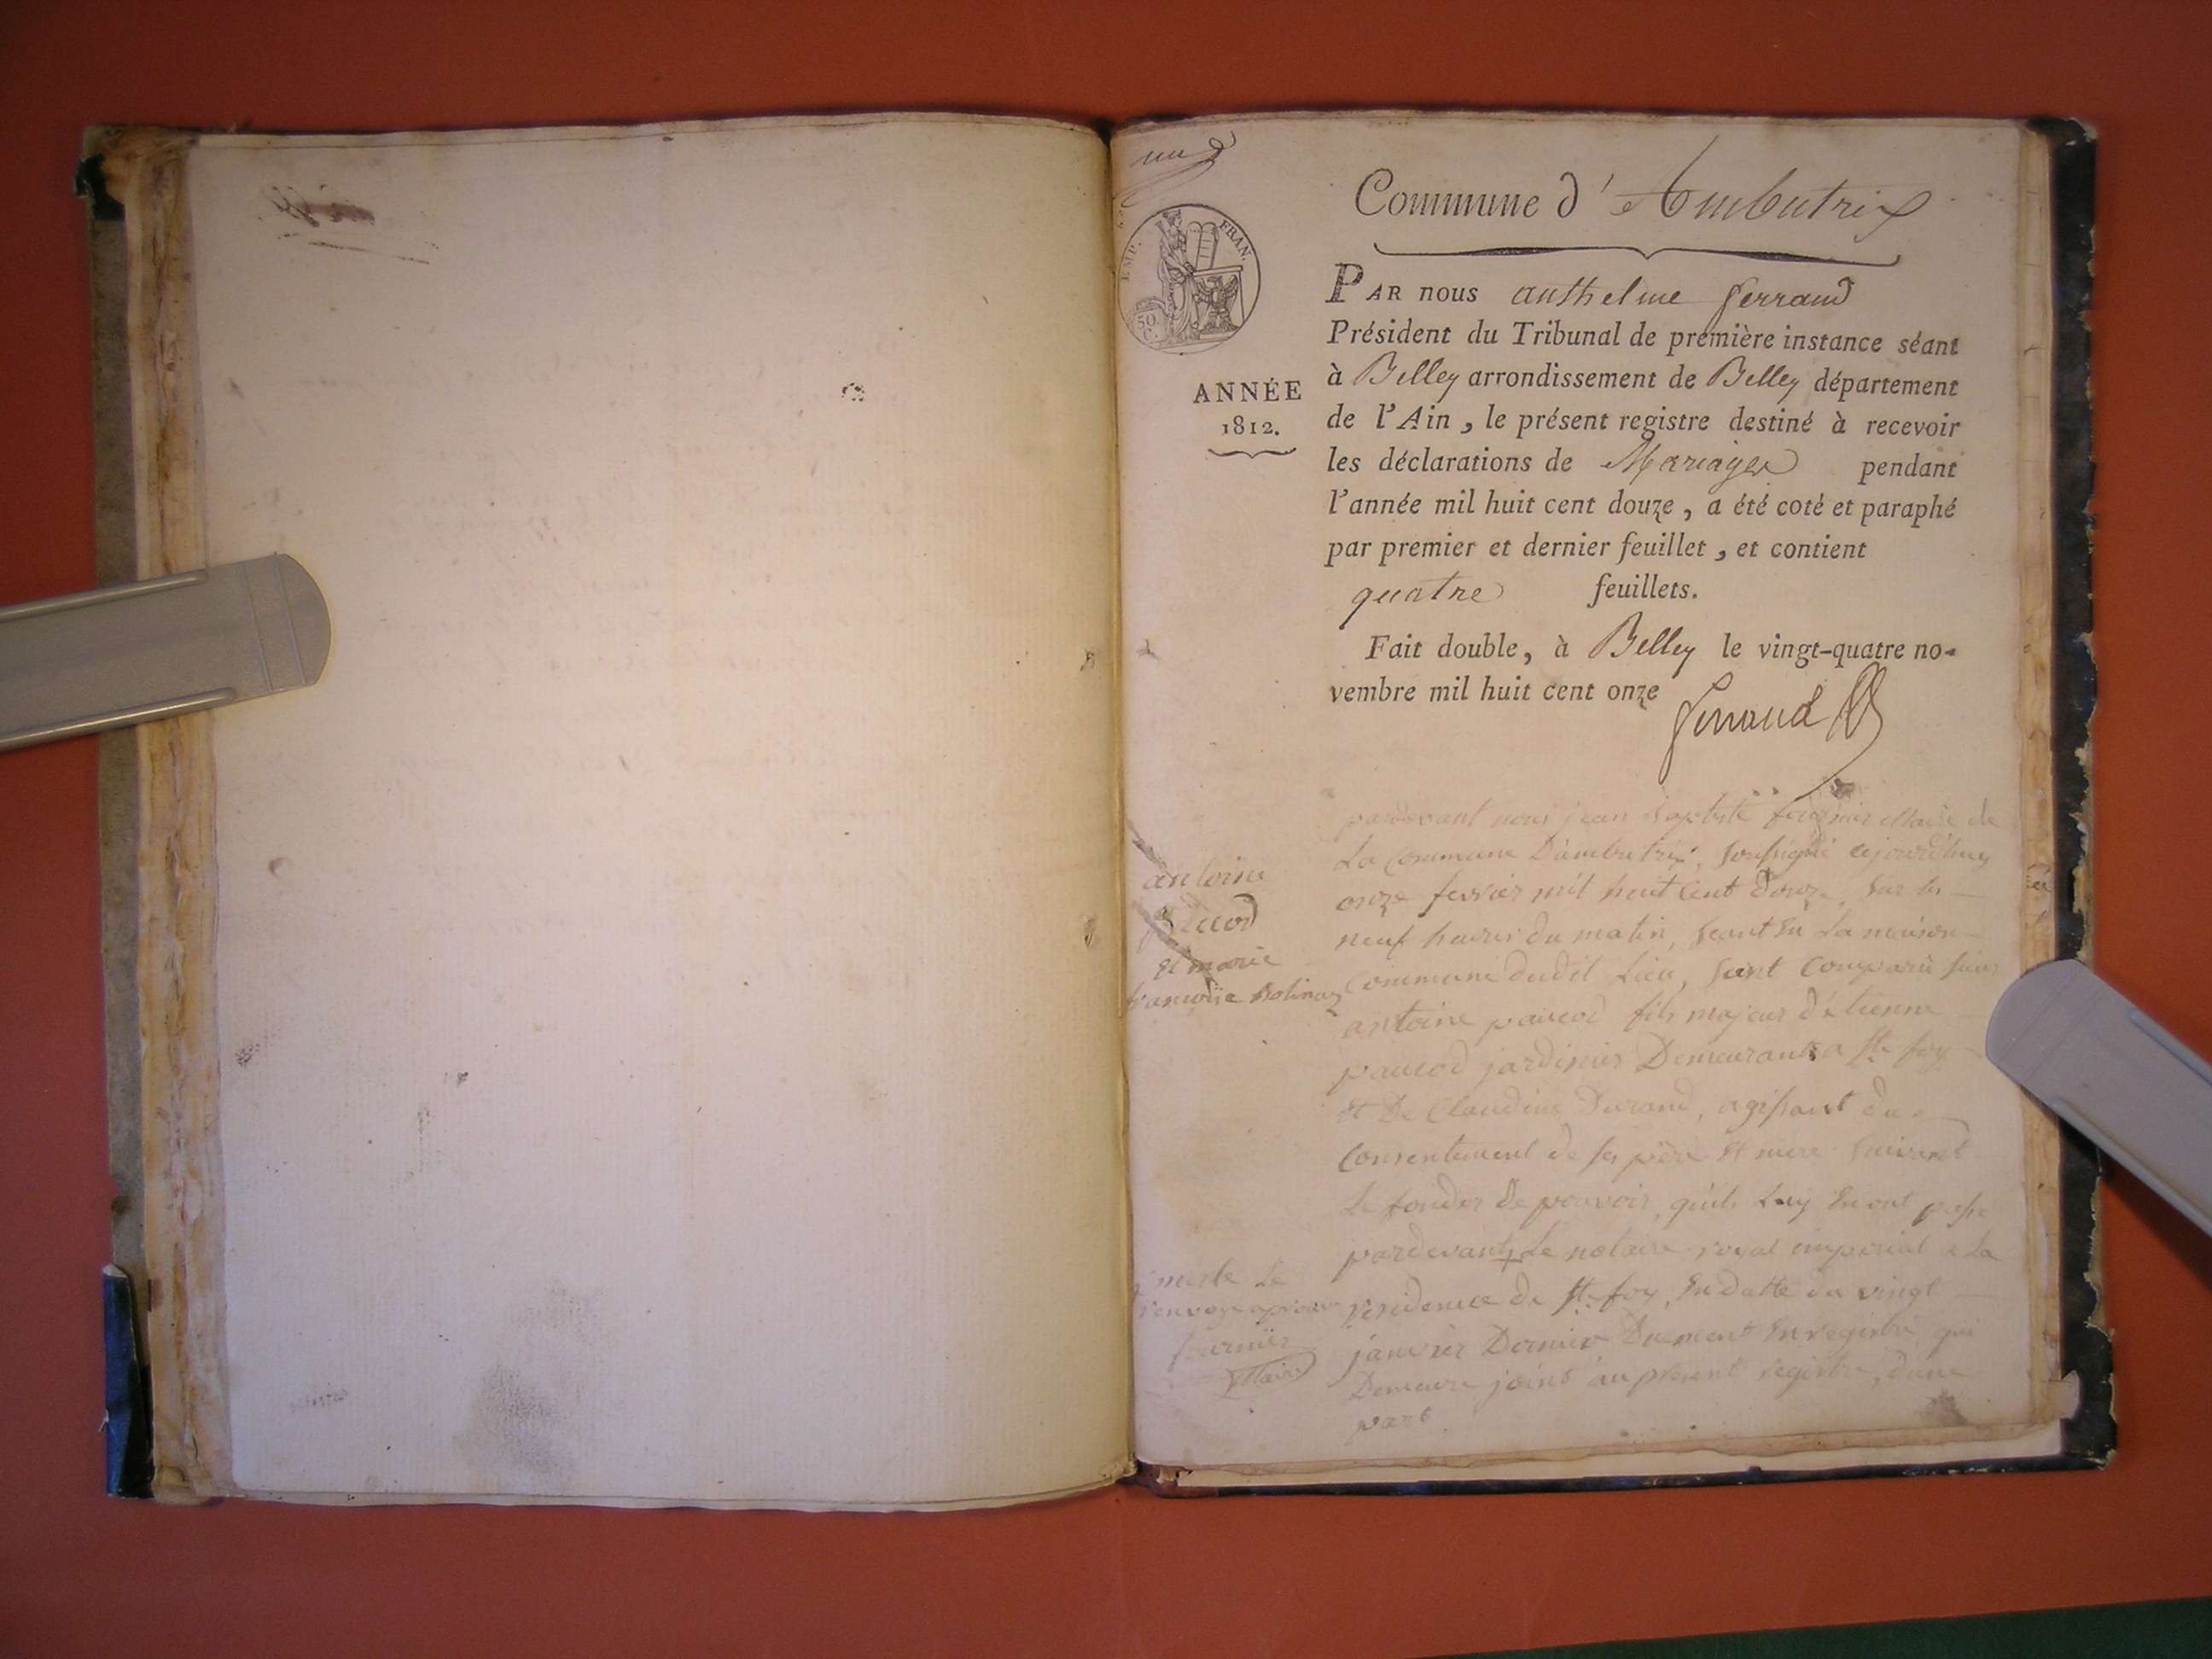 EMP. FRAN.
50 C.
Commune d' Ambutrix
ANNÉE
1812.
PAR nous anthelme ferrand
Président du Tribunal de première instance séant
à Belley arrondissement de Belley département
de l'Ain, le présent registre destiné à recevoir
les déclarations de Mariages pendant
l'année mil huit cent douze, a été coté et paraphé
par premier et dernier feuillet, et contient
quatre feuillets.
Fait double, à Belley le vingt-quatre no-
vembre mil huit cent onze
ferrand
antoine
et marie
pardevant nous jean baptiste fournier Maire de
La Commune D'ambutrix, soussigné
onze fevrier mil heuit Cent douze, sur les
neuf heures du matin, seant En La maison
Commune dudit Lieu, sont Comparu
antoine paucod fils majeur d'étienne
paucod jardinier Demeurant a Ste foy
Et De Claudine Durand, agissant du
Consentement de ses père Et mere suivant
Le fonder De pouvoir, quils Luy En ont passé
pardevant Le notaire royal imperial a La
residence de Ste foy, En datte du vingt
janvier Dernier Duement Enregistré, qui
Demeure joint au present registre, d'une
part
merle Le
renvoye
fournier
Maire